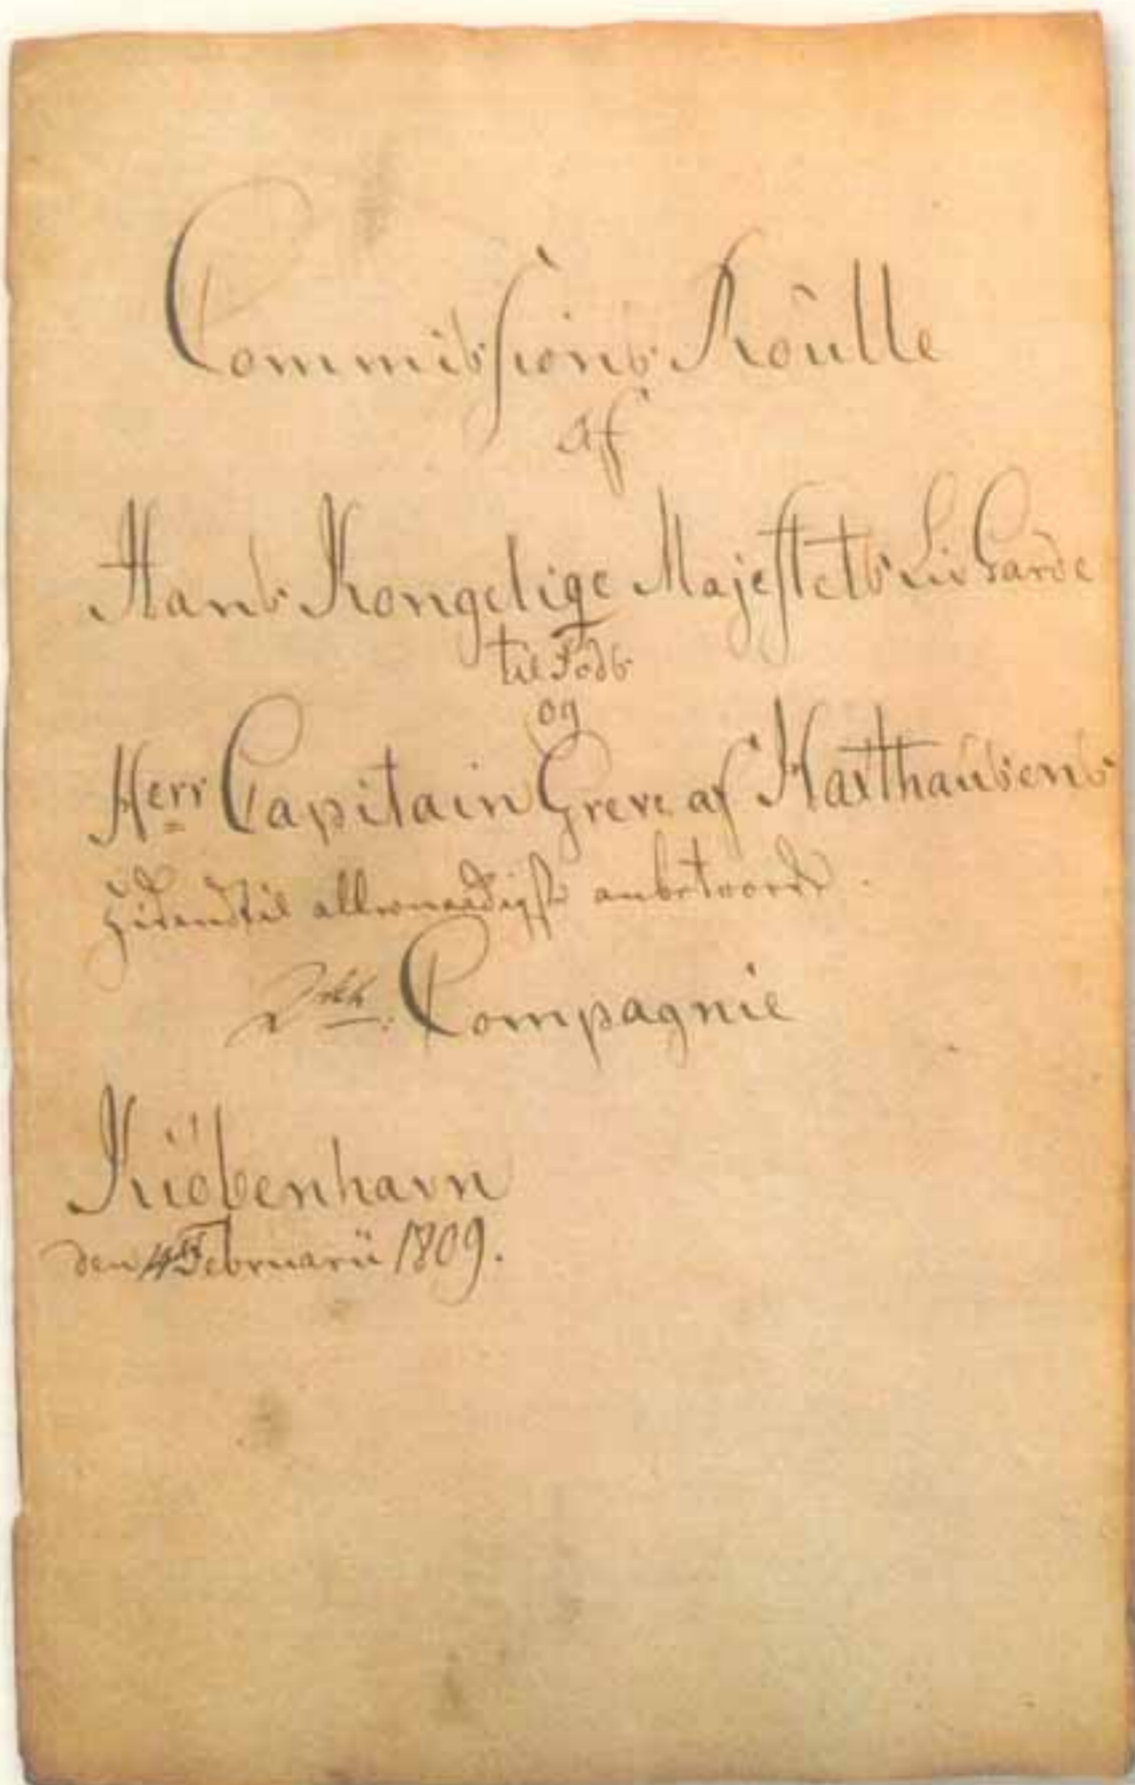 Commissions Roulle
af
Hans Kongelige Majestets Liv Garde
til Fods
og
Herr Capitain Greve af Haxthausens
allernaadigst anbetroede
Compagnie
Kiöbenhavn
den Februarii 1809.